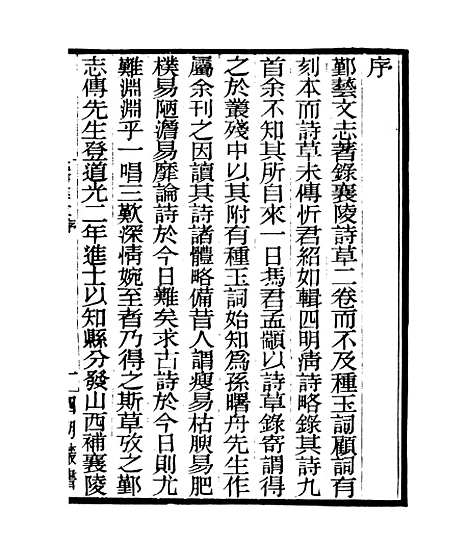 序
鄞藝文志著錄襄陵詩草二卷而不及種玉詞顧詞有
刻本而詩草未傳忻君紹如輯四明清詩略錄其詩九
首余不知其所自來一日馮君孟顓以詩草錄寄謂得
之於叢殘中以其附有種玉詞始知為孫曙舟先生作
屬余刊之因讀其詩諸體略備昔人謂瘦易枯腴易肥
樸易陋澹易靡論詩於今日難矣求古詩於今日則尤
難淵淵乎一唱三歎深情婉至者乃得之斯草攷之鄞
志傳先生登道光二年進士以知縣分發山西補襄陵
序
一
四明叢書